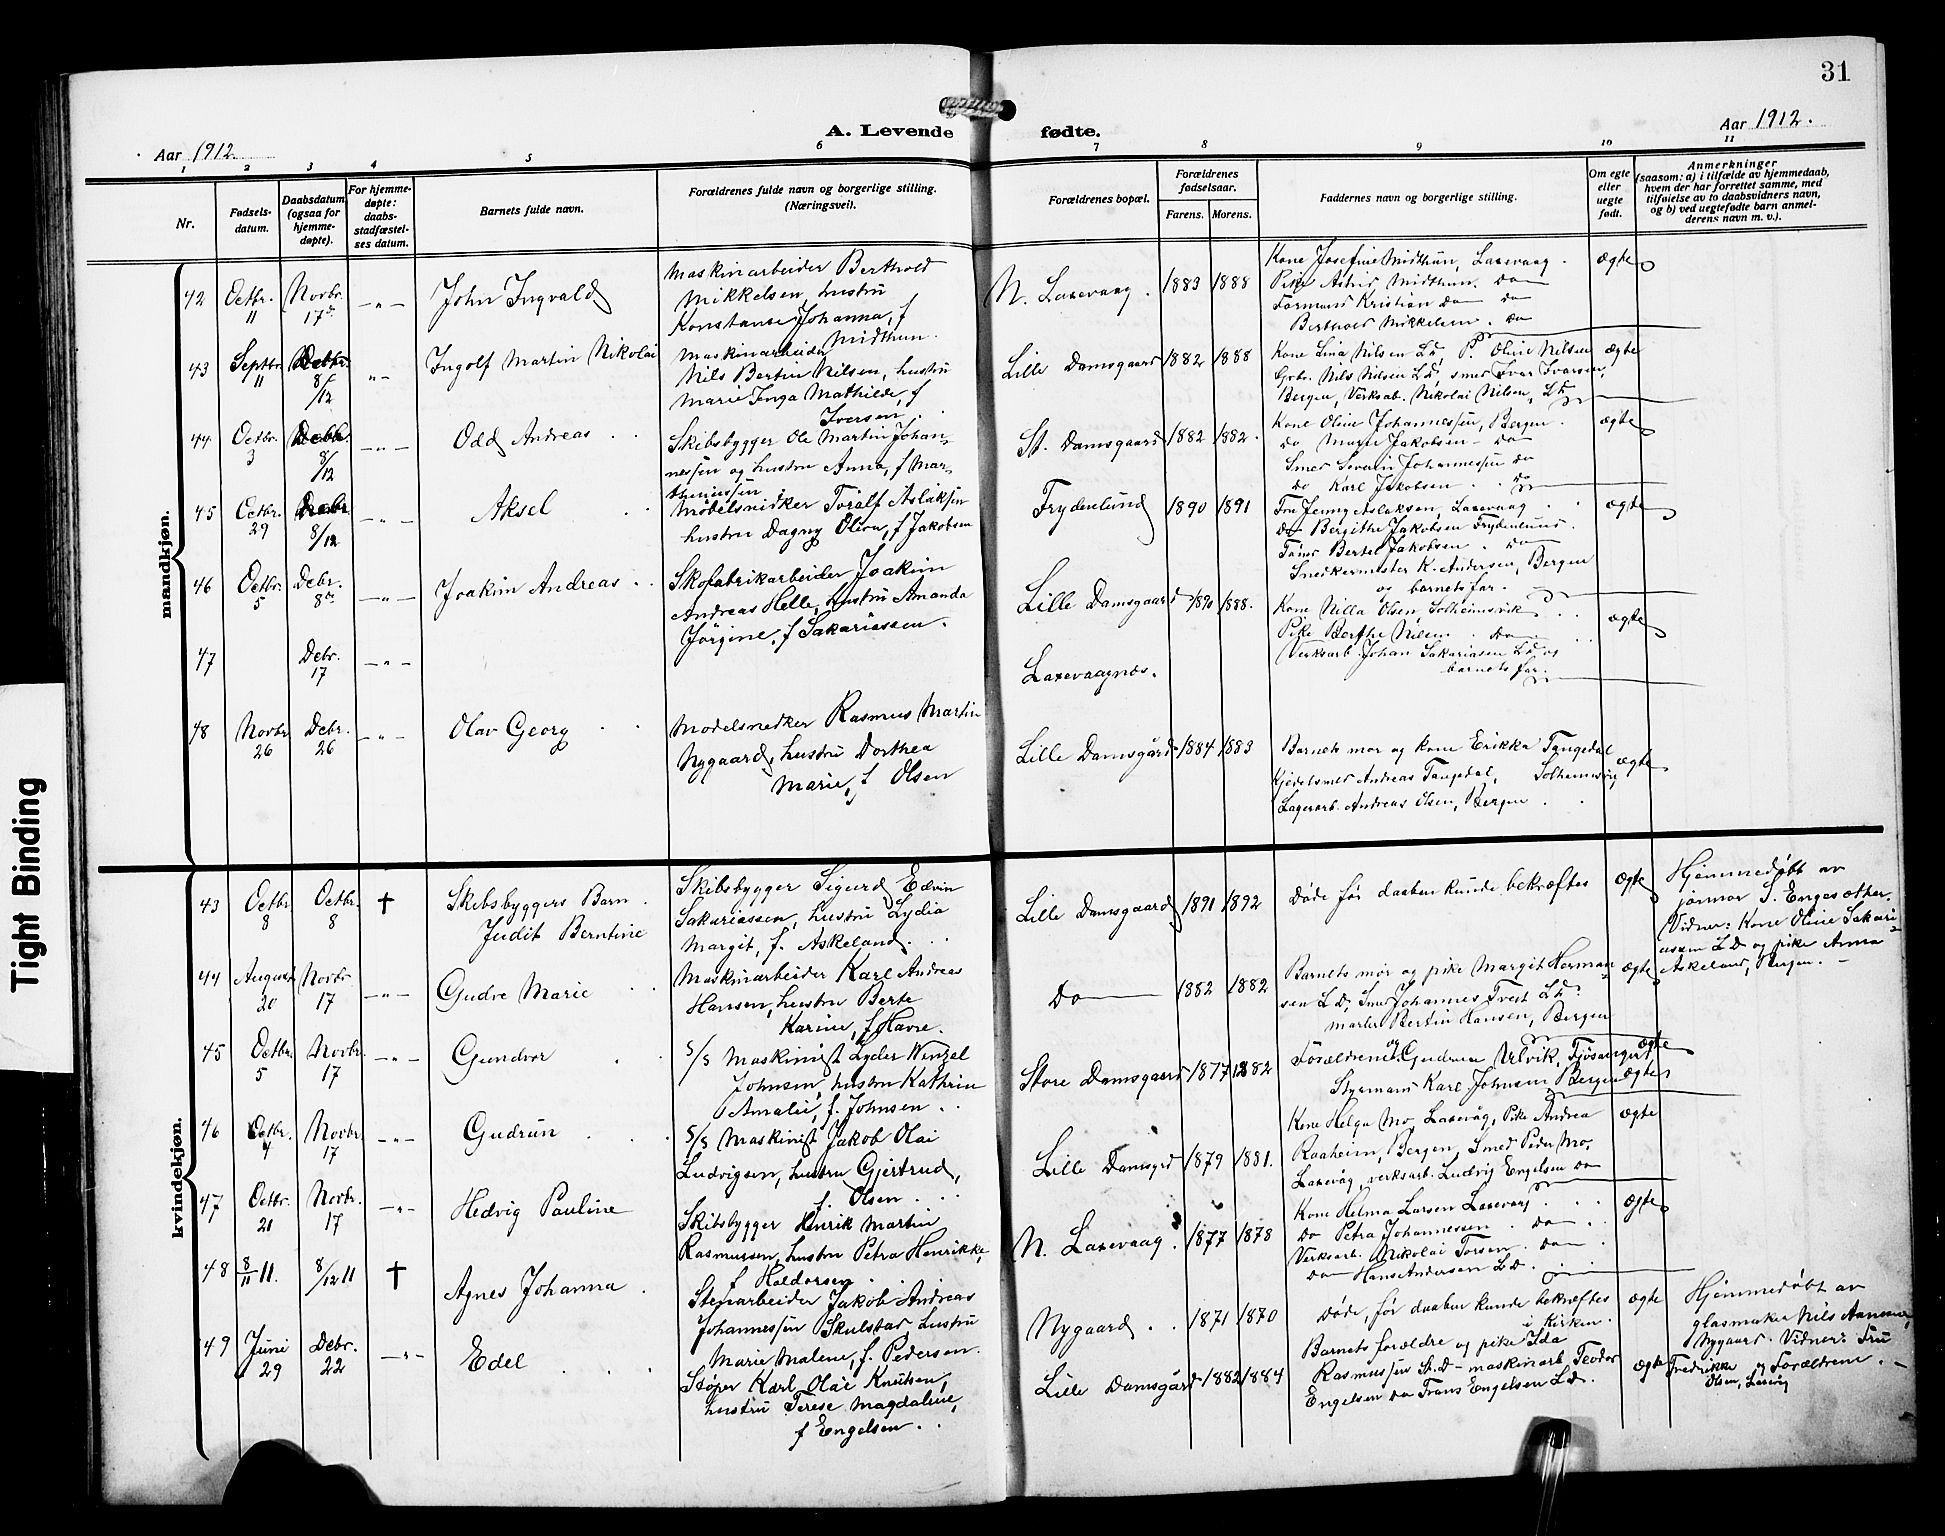 31
A. Levende fødte.
Aar 1912.
Aar 1912.
1 2 3 4 5 6 7 8 9 10 11
Nr.
Fødsels-
datum.
Daabsdatum
(ogsaa for
hjemme-
døpte).
For hjemme-
døpte:
daabs-
stadfæstel-
ses datum.
Barnets fulde navn.
Forældrenes fulde navn og borgerlige stilling.
(Næringsvei).
Forældrenes bopæl.
Forældrenes
fødselsaar.
Farens. Morens.
Faddernes navn og borgerlige stilling.
Om egte
eller
uegte
født.
Anmerkninger
(saasom: a) i tilfælde av hjemmedaab,
hvem der har forrettet samme, med
tilføielse av to daabsvidners navn,
og b) ved uegtefødte barn anmel-
derens navn m. v.).
mandkjøn.
42 Octbr. 11 Novbr. 17de -"- John Ingvald
Maskinarbeider Berthold
Mikkelsen, hustru
Konstanse Johanna, f
Midthun.
N. Laxevaag. 1883 1888
Kone Josefine Midthun, Laxevaag.
Pike Astrid Midthun. Do
Formand Kristian Do Do
Berthold Mikkelsen. Do
ægte
43 Septbr. 11 Debr. 8/12 -"- Ingolf Martin Nikolai
Maskinarbeider
Nils Bertin Nilsen, hustru
Marie Inga Mathilde, f
Iversen.
Lille Damsgaard 1882 1888
Kone Lina Nilsen L.D., P. Oline Nilsen
Grbr. Nils Nilsen L.D., smed Ivar Ivarsen,
Bergen, Verksarb. Nikolai Nilsen, L.D.
ægte
44 Octbr. 3 Debr. 8/12 -"- Odd Andreas
Skibsbygger Ole Martin Johan-
nessen og hustru Anna, f Mar-
theniussen
St. Damsgaard 1882 1882.
Kone Oline Johannessen, Bergen.
do Marie Jakobsen - Do
Smed Severin Johannessen Do
Do Karl Jakobsen Do
ægte
45 Octbr. 29 Debr 8/12 -"- Aksel
Møbelsnidker Toralf Aslaksen
hustru Dagny Oliva, f Jakobsen
Frydenlund 1890 1891
Fru Jenny Aslaksen, Laxevaag
Do Bergithe Jakobsen Frydenlund.
Bertel Jakobsen. Do
Snedkermester K. Andersen, Bergen
og barnets far.
ægte
46 Octbr. 5 Debr. 8de -"- Joakim Andreas
Skofabrikarbeider Joakim
Andreas Helle, hustru Amanda
Jørgine, f Sakariassen.
Lille Damsgaard 1890 1888.
Kone Nilla Olsen, Solheimsvik
Pike Berthe Nilsen. Do
Verksarb. Johan Sakariasen L.D. og
barnets far.
ægte
47 Debr. 17 -"-
Laxevaagnes.
48 Novbr 26 Debr. 26 -"- Olav Georg
Modelsnedker Rasmus Martin
Nygaard, hustru Dorthea
Marie, f Olsen
Lille Damsgård 1884 1883
Barnets mor og kone Erikka Tangedal
Kjedelsmed Andreas Tangedal, Solheimsvik,
Lagerarb. Andreas Olsen, Bergen.
ægte
kvindekjøn.
43 Octbr. 8 Octbr. 8 † Skibsbyggers Barn.
Judit Berntine
Skibsbygger Sigurd Edvin
Sakariassen, hustru Lydia
Margit, f. Askeland.
Lille Damsgaard 1891 1892
Døde før daaben kunde bekræftes
ægte
Hjemmedøbt av
jormor S. Engesæther.
Vidner: Kone Oline Sakari-
assen L.D. og pike Anna
Askeland, Bergen.
44 August 20 Novbr. 17 -"- Gudve Marie
Maskinarbeider Karl Andreas
Hansen, hustru Berte
Karine, f Havre.
Do 1882 1882
Barnets mor og pike Margit Herman-
sen L.D., Smed Johannes Tveit L.D.
Bertin Hansen, Bergen
ægte
45 Octbr. 5 Novbr. 17 -"- Gundvor
S/S Maskinist Lyder Wenzel
Johnsen, hustru Kathrine
Amalie, f. Johnsen.
Store Damsgaard 1877 1882
Forældrene og Gudrun Ulvik, Fjøsanger
Styrmand Karl Johnsen Bergen
ægte
ægte
46 Octbr. 4 Novbr. 17 -"- Gudrun
S/S Maskinist Jakob Olai
Ludvigsen, hustru Gjertrud,
f. Olsen.
Lille Damsgrd 1879 1881.
Kone Helga Mo, Laxevåg, Pike Andrea
Raaheim, Bergen, Smed Peder Mo,
Laxevåg, verksarb. Ludvig Engelsen Do
ægte
47 Octbr. 21 Novbr. 17 -"- Hedvig Pauline
Skibsbygger Henrik Martin
Rasmussen, hustru Petra Henrikke,
f Haldorsen.
N. Laxevaag. 1877 1878
Kone Helma Larsen Laxevaag
Do Petra Johannessen. Do
Verksarb. Nikolai Torsen. Do
Do Hans Andersen L.D.
ægte
48 8/11 11. 8/12 11 † Agnes Johanna.
Stenarbeider Jakob Andreas
Johannessen Skulstad hustru
Marie Malene, f. Pedersen.
Nygaard. 1871 1870
Døde, før daaben kunde bekræftes
i kirken.
ægte
Hjemmedøbt av
glasmaker Nils
Nygaard. Vidner: Fru
Fredrikke Olsen, Laxvåg og Forældrene.
49 Juni 29 Debr. 22 -"- Edel
Støper Karl Olai Knutsen,
hustru Terese Magdalene,
f Engelsen.
Lille Damsgård 1882 1884
Barnets forældre og pike Ida
Rasmussen St.D - maskinarb Teodor
Engelsen Do Frans Engelsen L.D.
ægte
Tight Binding